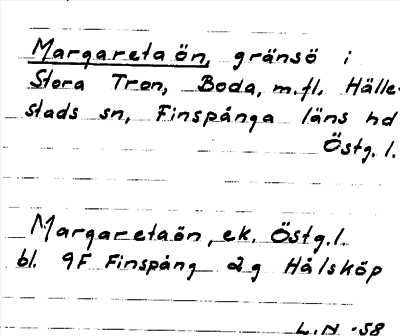 Margaretaön, gränsö i
Stora Tron, Boda, m.fl. Hälle-
stads sn, Finspånga läns hd
Östg. l.
Margaretaön, ek. Östg. l.
bl. 9F Finspång 2g Hålsköp
L.N. -58